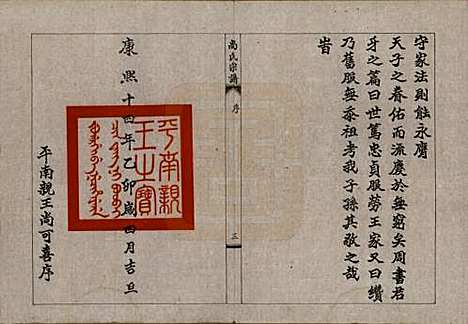 守家法則能永膺
天子之眷佑而流慶於無窮矣周書君
牙之篇曰世篤忠貞服勞王家又曰纘
乃舊服無忝祖考我子孫其敬之哉
旹
尚氏宗譜
序
三
康熙十四年乙卯歲四月吉旦
平南親
王之寶
平南親王尚可喜序